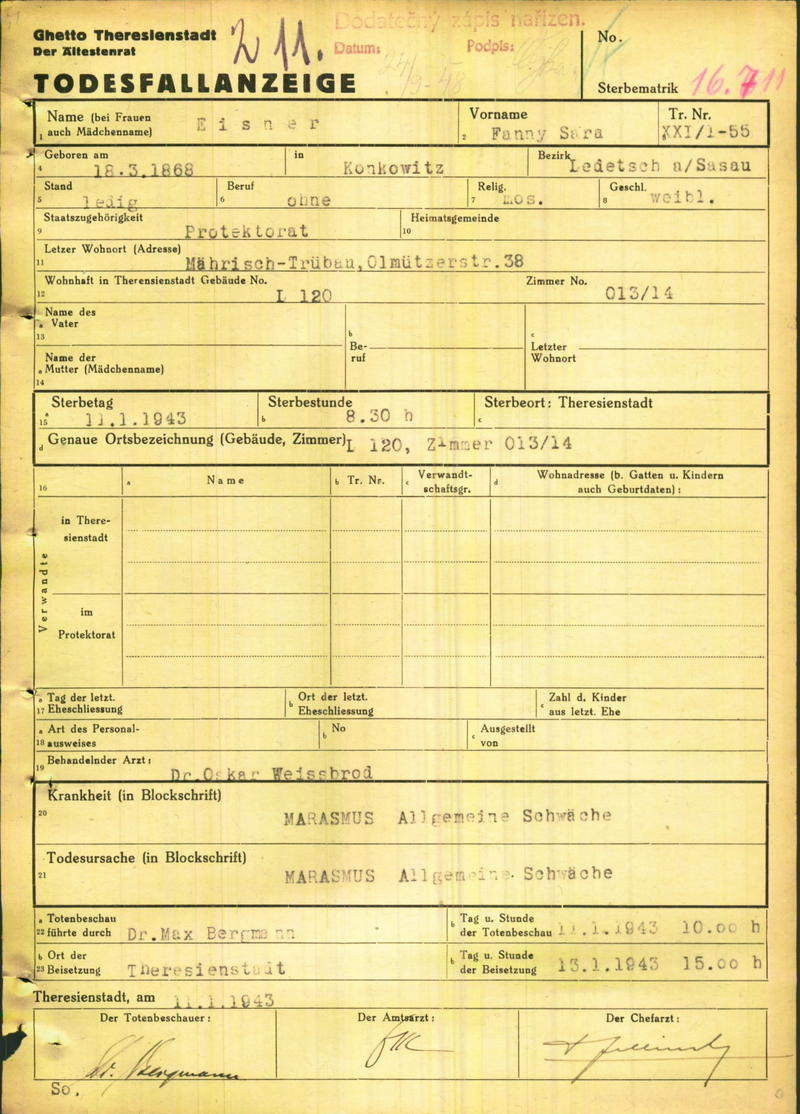 Ghetto Theresienstadt
Der Ältestenrat
Z 11.
Dodatečný zápis nařízen.
Datum: Podpis:
24/9-48
No.
TODESFALLANZEIGE
Sterbematrik 16.711
Name (bei Frauen auch Mädchenname) Eisner
1
Vorname
2 Fanny Sara
Tr. Nr.
XXI/1-55
Geboren am
4 18.3.1868
in
Konkowitz
Bezirk Ledetsch a/Sasau
Stand
5 ledig
Beruf
6 ohne
Relig.
7 mos.
Geschl.
8 weibl.
Staatszugehörigkeit
9 Protektorat
Heimatsgemeinde
10
Letzer Wohnort (Adresse)
11 Mährisch-Trübau,Olmützerstr.38
Wohnhaft in Therensienstadt Gebäude No.
12 L 120
Zimmer No.
013/14
a Name des Vater
13
b Be-ruf
c Letzter Wohnort
Name der
a Mutter (Mädchenname)
14
Sterbetag
15 a 11.1.1943
Sterbestunde
b 8.30 h
Sterbeort: Theresienstadt
c
d Genaue Ortsbezeichnung (Gebäude, Zimmer) L 120, Zimmer 013/14
16
a Name
b Tr. Nr.
c Verwandt-schaftsgr.
d Wohnadresse (b. Gatten u. Kindern auch Geburtdaten):
Verwandte
in There-sienstadt
im Protektorat
a Tag der letzt.
17 Eheschliessung
b Ort der letzt. Eheschliessung
c Zahl d. Kinder aus letzt. Ehe
a Art des Personal-
18 ausweises
b No
c Ausgestellt von
19 Behandelnder Arzt:
Dr.Oskar Weissbrod
Krankheit (in Blockschrift)
20 MARASMUS Allgemeine Schwäche
Todesursache (in Blockschrift)
21 MARASMUS Allgemeine Schwäche
a Totenbeschau
22 führte durch Dr.Max Bergmann
b Tag u. Stunde der Totenbeschau 11.1.1943 10.00 h
b Ort der
23 Beisetzung Theresienstadt
b Tag u. Stunde der Beisetzung 13.1.1943 15.00 h
Theresienstadt, am 11.1.1943
Der Totenbeschauer:
Der Amtsarzt:
Der Chefarzt:
Dr. Bergmann
So.